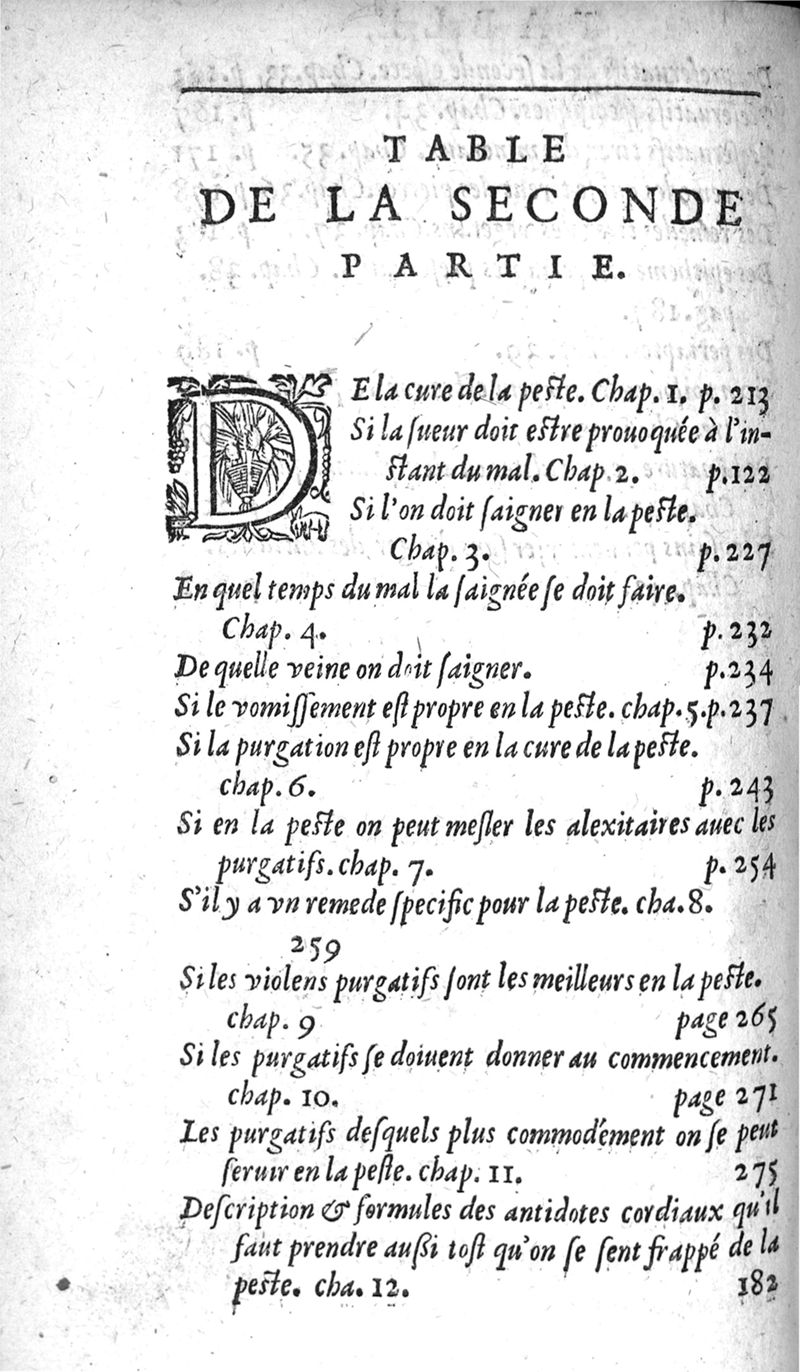 TABLE
DE LA SECONDE
PARTIE.
DE la cure de la peſte. Chap. 1. p. 213
Si la ſueur doit eſtre prouoquée à l'in-
ſtant du mal. Chap 2. p.122
Si l'on doit ſaigner en la peſte.
Chap. 3. p. 227
En quel temps du mal la ſaignée ſe doit faire.
Chap. 4. p. 232
De quelle veine on doit ſaigner. p.234
Si le vomiſſement eſt propre en la peſte. chap. 5. p. 237
Si la purgation eſt propre en la cure de la peſte.
chap. 6. p. 243
Si en la peſte on peut meſler les alexitaires auec les
purgatifs. chap. 7. p. 254
S'il y a vn remede ſpecific pour la peſte. cha. 8.
259
Si les violens purgatifs ſont les meilleurs en la peſte.
chap. 9 page 265
Si les purgatifs ſe doiuent donner au commencement.
chap. 10. page 271
Les purgatifs deſquels plus commodément on ſe peut
ſeruir en la peſte. chap. 11. 275
Deſcription & formules des antidotes cordiaux qu'il
faut prendre außi toſt qu'on ſe ſent frappé de la
peſte. cha. 12. 182